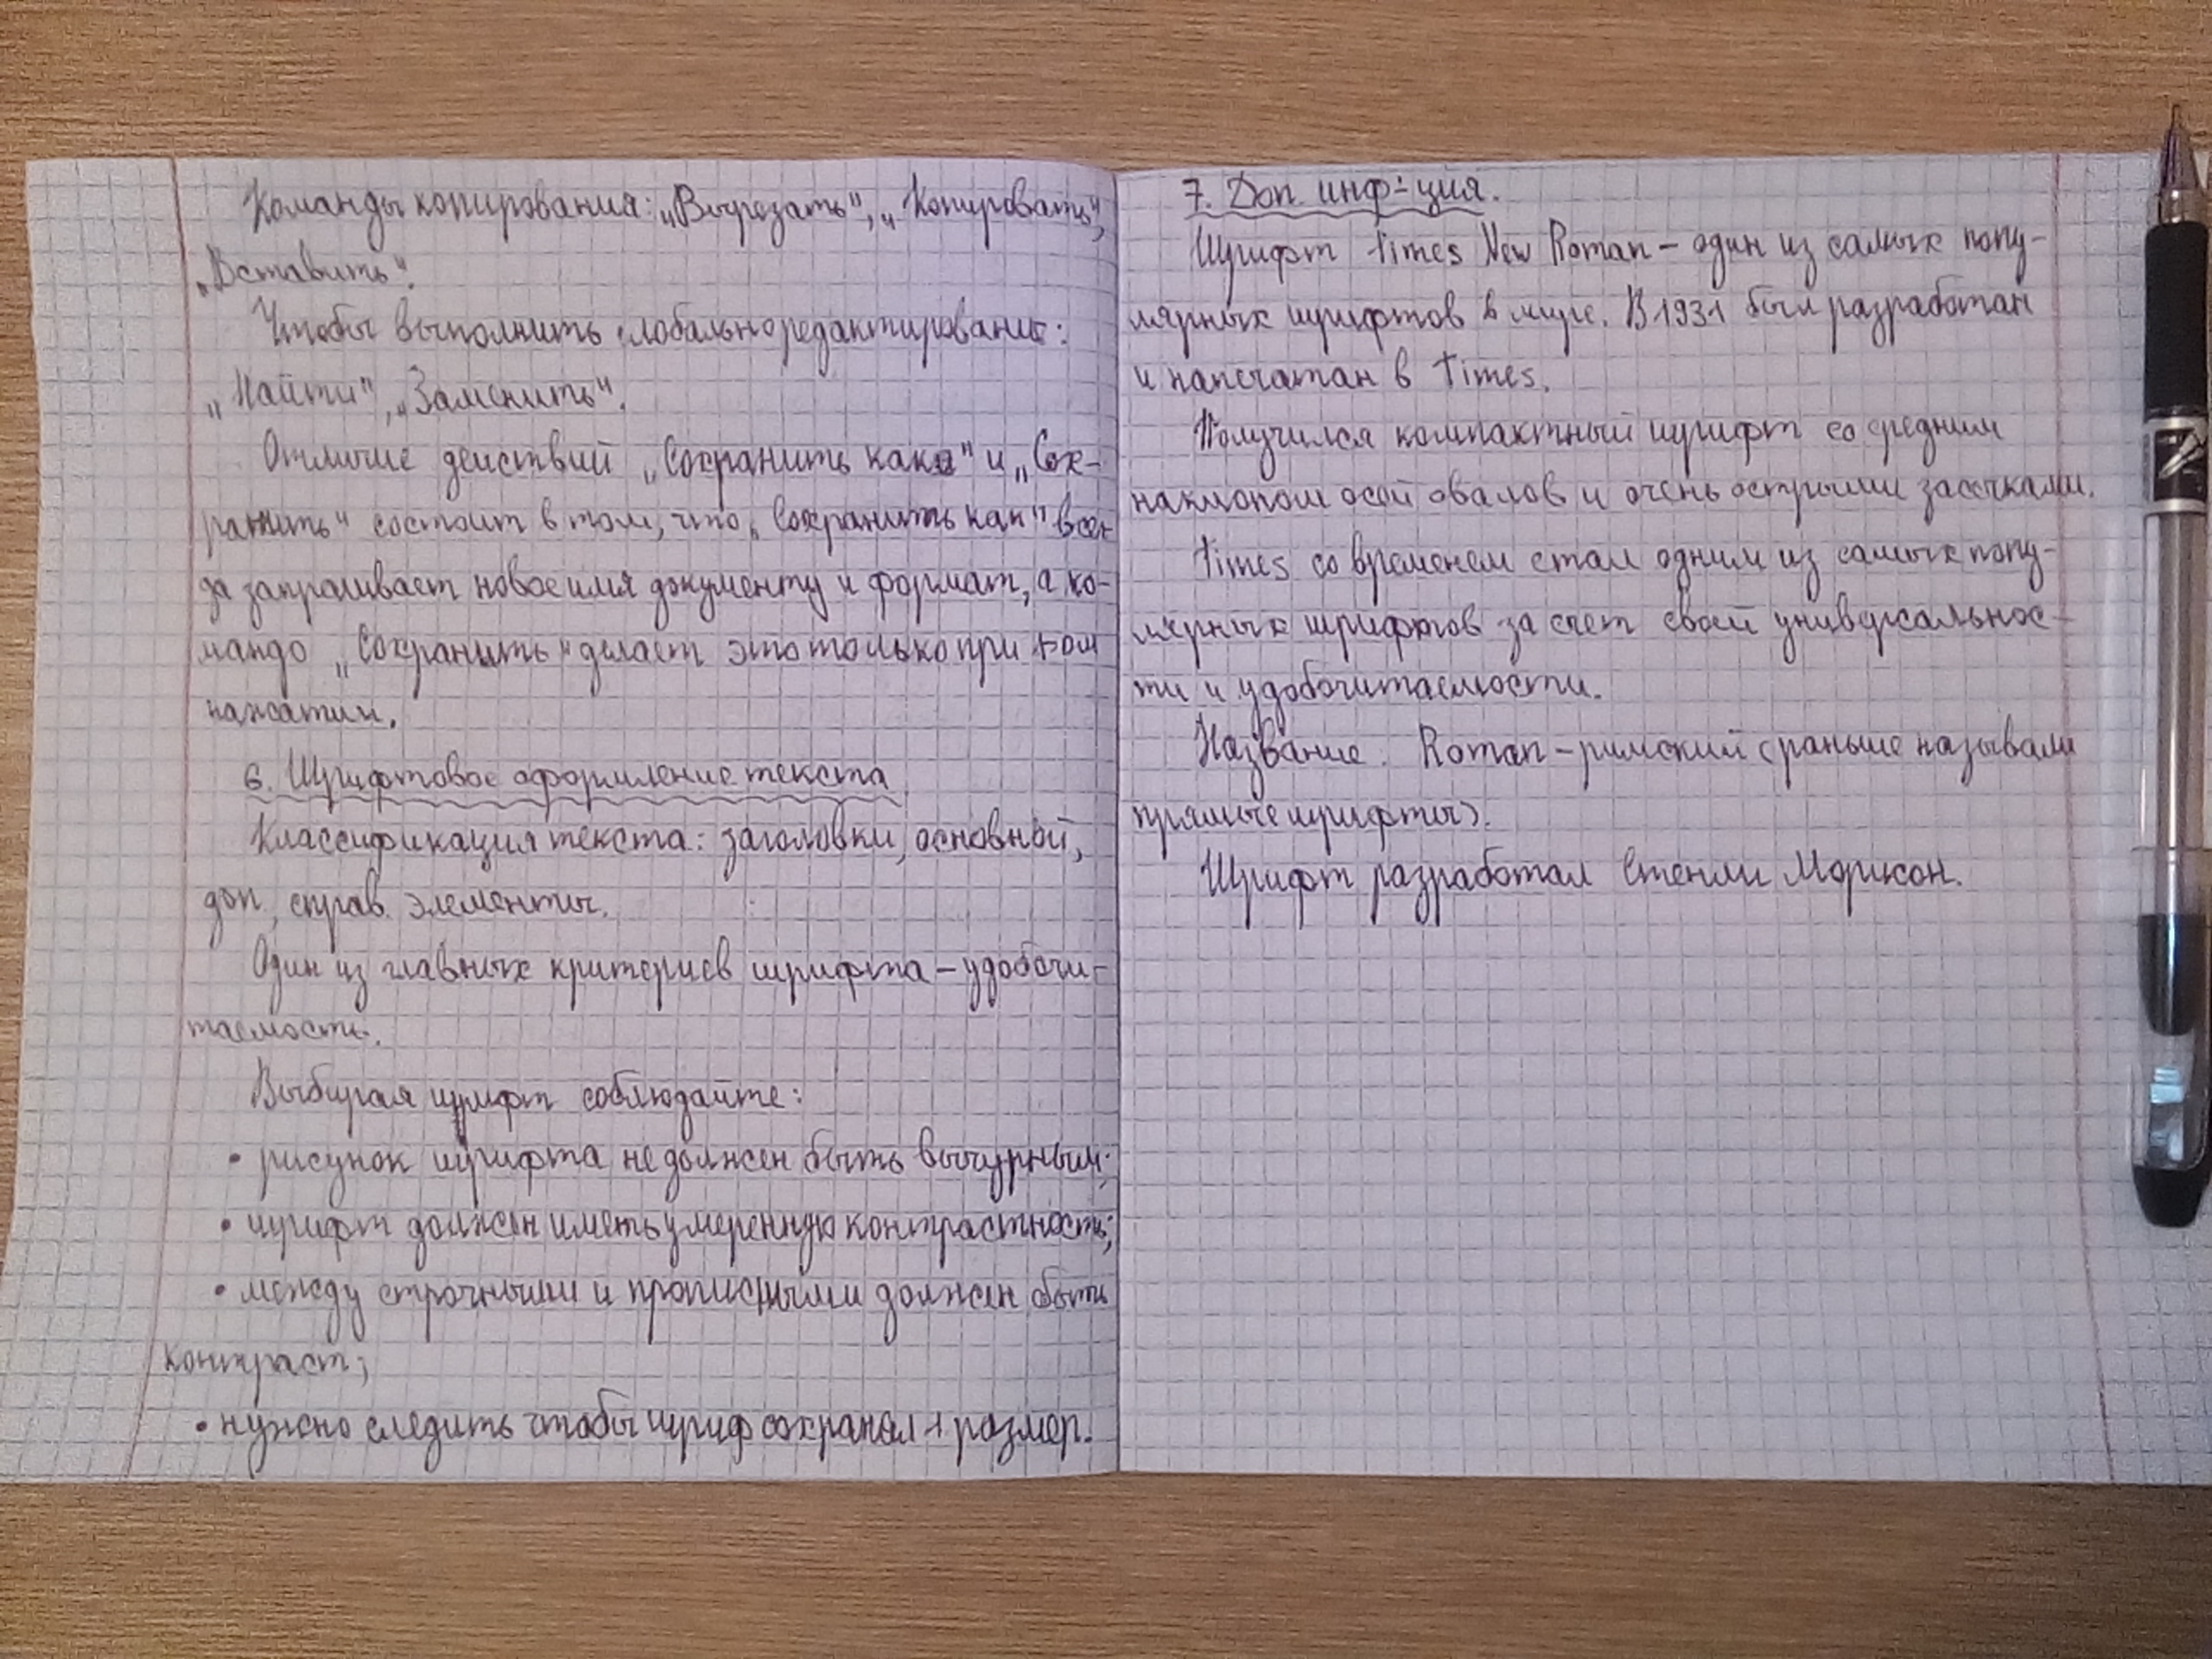 Команды копирования: „Вырезать", „Копировать",
„Вставить".
Чтобы выполнить глобально редактирование:
„Найти", „Заменить".
Отличие действий „Сохранить как" и „Сох-
ранить" состоит в том, что „Сохранить как" всег-
да запрашивает новое имя документу и формат, а ко-
манда „Сохранить" делает это только при 1-ом
нажатии.
6. Шрифтовое оформление текста
Классификация текста: заголовки, основной,
доп., справ. элементы.
Один из главных критериев шрифта – удобочи-
таемость.
Выбирая шрифт соблюдайте:
• рисунок шрифта не должен быть вычурным;
• шрифт должен иметь умеренную контрастность;
• между строчными и прописными должен быть
контраст;
• нужно следить чтобы шриф сохранял 1 размер.
7. Доп. инф-ция.
Шрифт Times New Roman – один из самых попу-
лярных шрифтов в мире. В 1931 был разработан
и напечатан в Times.
Получился компактный шрифт со средним
наклоном осей овалов и очень острыми засечками.
Times со временем стал одним из самых попу-
лярных шрифтов за счет своей универсальнос-
ти и удобочитаемости.
Название. Roman – римский (раньше называли
прямые шрифты).
Шрифт разработал Стенли Морисон.